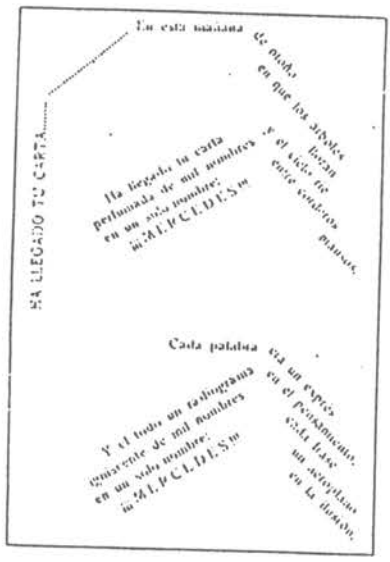 HA LLEGADO TU CARTA
En esta mañana
de otoño
en que los árboles
lloran
y el cielo ríe
entre corderos
mansos,
Ha llegado tu carta
perfumada de mil nombres
en un solo nombre:
¡¡¡MERCEDES!!!
Cada palabra
era un exprés
en el pensamiento,
cada frase
un aeroplano
en la ilusión.
Y el todo un radiograma
ignivente de mil nombres
en un solo nombre:
¡¡¡MERCEDES!!!